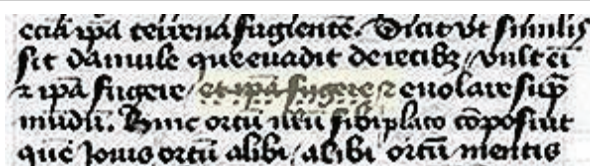 eccīa ip̄a terrena fugientē. Dicit ut similis
sit damule que euadit de recibꝫ / uult eī
⁊ ip̄a fugere / et ip̄a fugere ⁊ euolare sup̄
mūdū. Hinc ortū sibi plato cōposuit
que Iouis ortū alibi / alibi ortū mentis